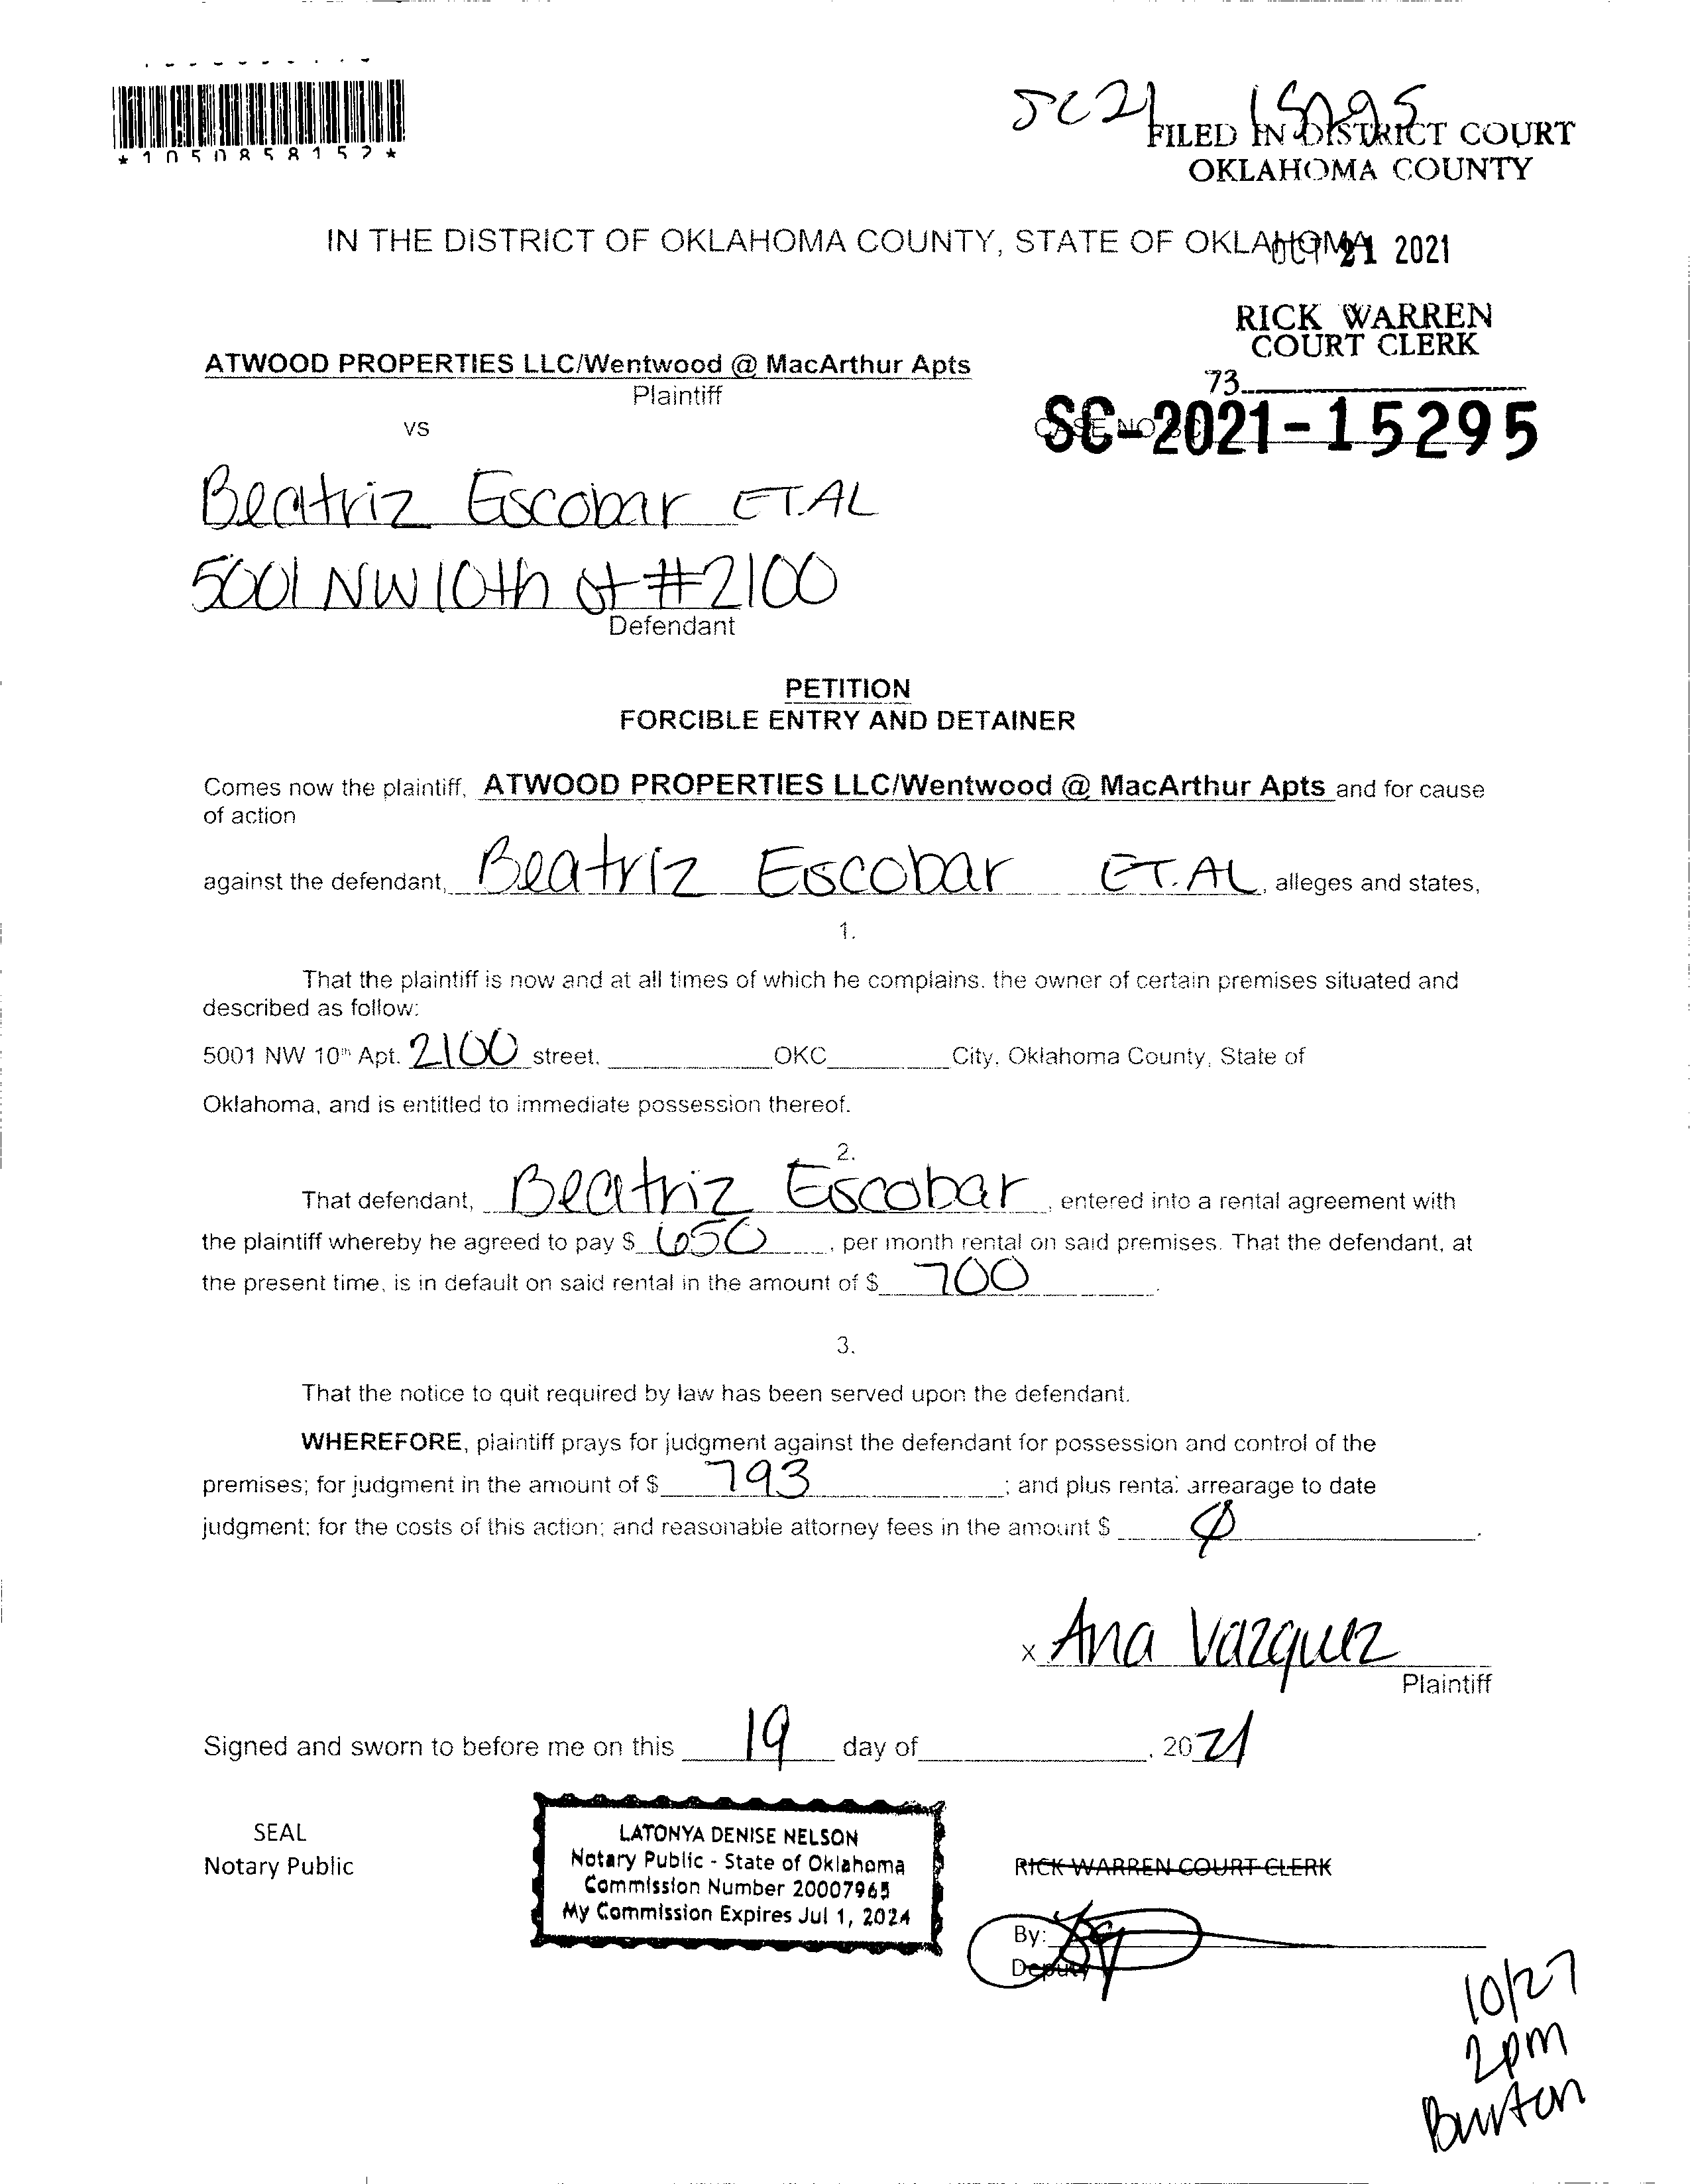 *1050858152*
SC21 15295
FILED IN DISTRICT COURT
OKLAHOMA COUNTY
IN THE DISTRICT OF OKLAHOMA COUNTY, STATE OF OKLAHOMA
OCT 21 2021
RICK WARREN
COURT CLERK
73
ATWOOD PROPERTIES LLC/Wentwood @ MacArthur Apts
Plaintiff
vs
CASE NO. SC
SC-2021-15295
Beatriz Escobar ET.AL
5001 NW 10th st #2100
Defendant
PETITION
FORCIBLE ENTRY AND DETAINER
Comes now the plaintiff, ATWOOD PROPERTIES LLC/Wentwood @ MacArthur Apts and for cause
of action
against the defendant, Beatriz Escobar ET.AL, alleges and states,
1.
That the plaintiff is now and at all times of which he complains, the owner of certain premises situated and
described as follow:
5001 NW 10th Apt. 2100 street, OKC City, Oklahoma County, State of
Oklahoma, and is entitled to immediate possession thereof.
2.
That defendant, Beatriz Escobar, entered into a rental agreement with
the plaintiff whereby he agreed to pay $ 650, per month rental on said premises. That the defendant, at
the present time, is in default on said rental in the amount of $ 700.
3.
That the notice to quit required by law has been served upon the defendant.
WHEREFORE, plaintiff prays for judgment against the defendant for possession and control of the
premises; for judgment in the amount of $ 793; and plus rental arrearage to date
judgment; for the costs of this action; and reasonable attorney fees in the amount $ Ø.
x Ana Vazquez
Plaintiff
Signed and sworn to before me on this 19 day of, 2021
SEAL
Notary Public
LATONYA DENISE NELSON
Notary Public - State of Oklahoma
Commission Number 20007965
My Commission Expires Jul 1, 2024
RICK WARREN COURT CLERK
By:
Deputy
10/27
2pm
Burton